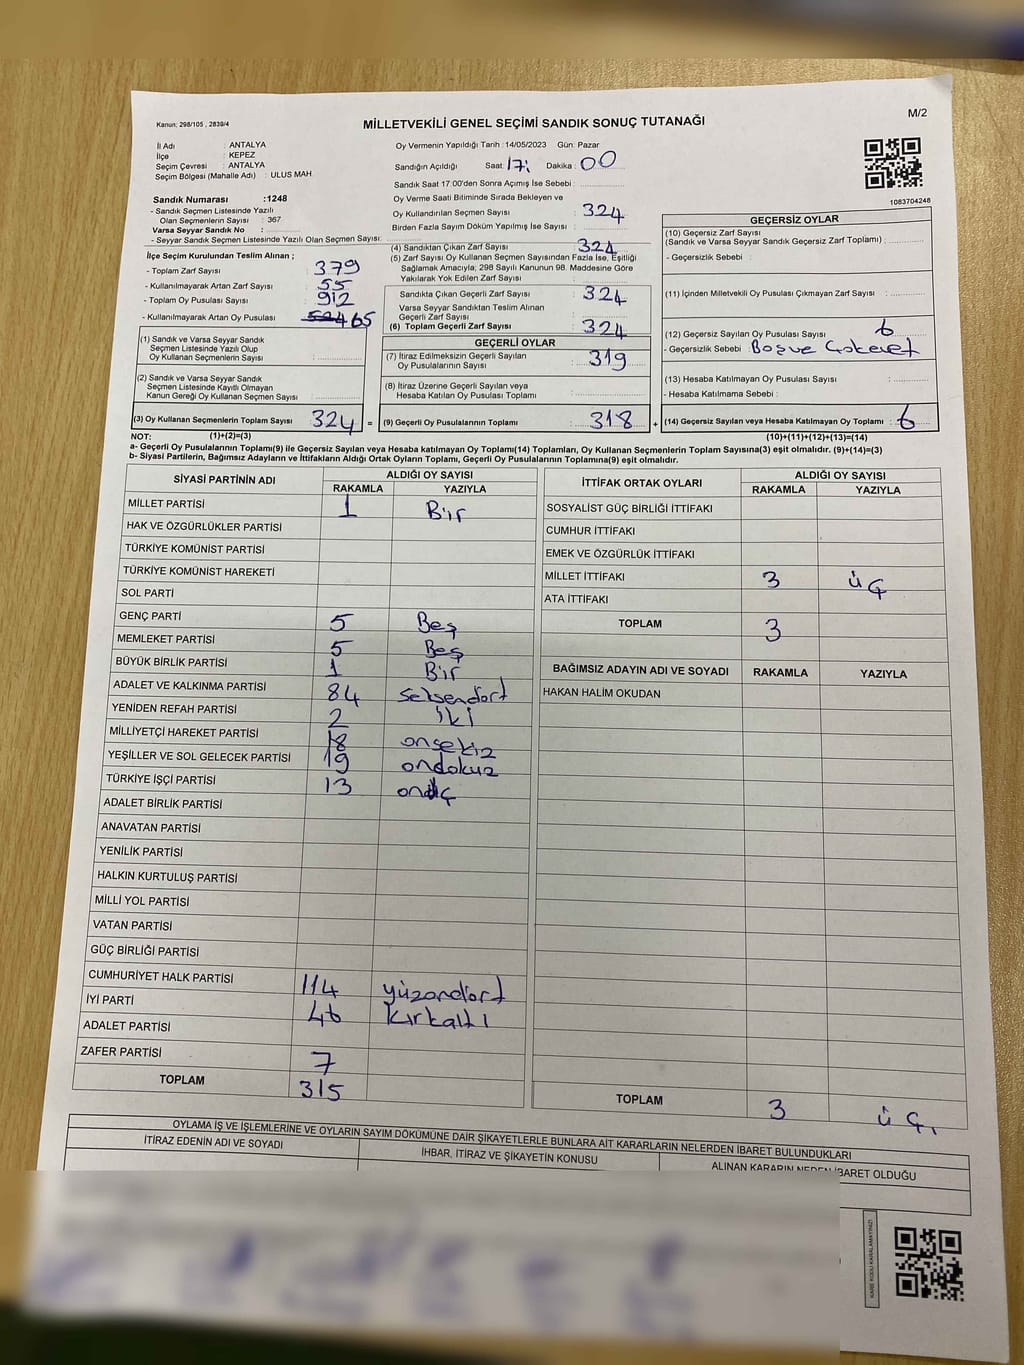 Kanun: 298/105 , 2839/4
MİLLETVEKİLİ GENEL SEÇİMİ SANDIK SONUÇ TUTANAĞI
M/2
İl Adı : ANTALYA
İlçe : KEPEZ
Seçim Çevresi : ANTALYA
Seçim Bölgesi (Mahalle Adı) : ULUS MAH
Sandık Numarası :1248
- Sandık Seçmen Listesinde Yazılı
Olan Seçmenlerin Sayısı : 367
Varsa Seyyar Sandık No :
- Seyyar Sandık Seçmen Listesinde Yazılı Olan Seçmen Sayısı:
İlçe Seçim Kurulundan Teslim Alınan ;
- Toplam Zarf Sayısı : 379
- Kullanılmayarak Artan Zarf Sayısı : 55
- Toplam Oy Pusulası Sayısı : 912
- Kullanılmayarak Artan Oy Pusulası : 65
(1) Sandık ve Varsa Seyyar Sandık
Seçmen Listesinde Yazılı Olup
Oy Kullanan Seçmenlerin Sayısı :
(2) Sandık ve Varsa Seyyar Sandık
Seçmen Listesinde Kayıtlı Olmayan
Kanun Gereği Oy Kullanan Seçmen Sayısı :
(3) Oy Kullanan Seçmenlerin Toplam Sayısı : 324 =
Oy Vermenin Yapıldığı Tarih : 14/05/2023 Gün: Pazar
Sandığın Açıldığı Saat: 17: Dakika : 00
Sandık Saat 17.00'den Sonra Açımış İse Sebebi :
Oy Verme Saati Bitiminde Sırada Bekleyen ve
Oy Kullandırılan Seçmen Sayısı : 324
Birden Fazla Sayım Döküm Yapılmış İse Sayısı :
(4) Sandıktan Çıkan Zarf Sayısı : 324
(5) Zarf Sayısı Oy Kullanan Seçmen Sayısından Fazla İse, Eşitliği
Sağlamak Amacıyla; 298 Sayılı Kanunun 98. Maddesine Göre
Yakılarak Yok Edilen Zarf Sayısı :
Sandıkta Çıkan Geçerli Zarf Sayısı : 324
Varsa Seyyar Sandıktan Teslim Alınan
Geçerli Zarf Sayısı :
(6) Toplam Geçerli Zarf Sayısı : 324
GEÇERLİ OYLAR
(7) İtiraz Edilmeksizin Geçerli Sayılan
Oy Pusulalarının Sayısı : 319
(8) İtiraz Üzerine Geçerli Sayılan veya
Hesaba Katılan Oy Pusulası Toplamı :
(9) Geçerli Oy Pusulalarının Toplamı : 318 +
1083704248
GEÇERSİZ OYLAR
(10) Geçersiz Zarf Sayısı
(Sandık ve Varsa Seyyar Sandık Geçersiz Zarf Toplamı) :
- Geçersizlik Sebebi :
(11) İçinden Milletvekili Oy Pusulası Çıkmayan Zarf Sayısı :
(12) Geçersiz Sayılan Oy Pusulası Sayısı : 6
- Geçersizlik Sebebi : Boşve
(13) Hesaba Katılmayan Oy Pusulası Sayısı :
- Hesaba Katılmama Sebebi :
(14) Geçersiz Sayılan veya Hesaba Katılmayan Oy Toplamı : 6
NOT: (1)+(2)=(3) (10)+(11)+(12)+(13)=(14)
a- Geçerli Oy Pusulalarının Toplamı(9) ile Geçersiz Sayılan veya Hesaba katılmayan Oy Toplamı(14) Toplamları, Oy Kullanan Seçmenlerin Toplam Sayısına(3) eşit olmalıdır. (9)+(14)=(3)
b- Siyasi Partilerin, Bağımsız Adayların ve İttifakların Aldığı Ortak Oyların Toplamı, Geçerli Oy Pusulalarının Toplamına(9) eşit olmalıdır.
SİYASİ PARTİNİN ADI ALDIĞI OY SAYISI
RAKAMLA YAZIYLA
MİLLET PARTİSİ 1 Bir
HAK VE ÖZGÜRLÜKLER PARTİSİ
TÜRKİYE KOMÜNİST PARTİSİ
TÜRKİYE KOMÜNİST HAREKETİ
SOL PARTİ
GENÇ PARTİ 5 Beş
MEMLEKET PARTİSİ 5 Beş
BÜYÜK BİRLİK PARTİSİ 1 Bir
ADALET VE KALKINMA PARTİSİ 84 seksendört
YENİDEN REFAH PARTİSİ 2 iki
MİLLİYETÇİ HAREKET PARTİSİ 18 onsekiz
YEŞİLLER VE SOL GELECEK PARTİSİ 19 ondokuz
TÜRKİYE İŞÇİ PARTİSİ 13 onüç
ADALET BİRLİK PARTİSİ
ANAVATAN PARTİSİ
YENİLİK PARTİSİ
HALKIN KURTULUŞ PARTİSİ
MİLLİ YOL PARTİSİ
VATAN PARTİSİ
GÜÇ BİRLİĞİ PARTİSİ
CUMHURİYET HALK PARTİSİ 114 yüzondört
İYİ PARTİ 46 kırkaltı
ADALET PARTİSİ
ZAFER PARTİSİ 7
TOPLAM 315
İTTİFAK ORTAK OYLARI ALDIĞI OY SAYISI
RAKAMLA YAZIYLA
SOSYALİST GÜÇ BİRLİĞİ İTTİFAKI
CUMHUR İTTİFAKI
EMEK VE ÖZGÜRLÜK İTTİFAKI
MİLLET İTTİFAKI 3 üç
ATA İTTİFAKI
TOPLAM 3
BAĞIMSIZ ADAYIN ADI VE SOYADI RAKAMLA YAZIYLA
HAKAN HALİM OKUDAN
TOPLAM 3 üç.
OYLAMA İŞ VE İŞLEMLERİNE VE OYLARIN SAYIM DÖKÜMÜNE DAİR ŞİKAYETLERLE BUNLARA AİT KARARLARIN NELERDEN İBARET BULUNDUKLARI
İTİRAZ EDENİN ADI VE SOYADI İHBAR, İTİRAZ VE ŞİKAYETİN KONUSU ALINAN KARARIN NEDEN İBARET OLDUĞU
KARE KODU KARALAMAYINIZ!